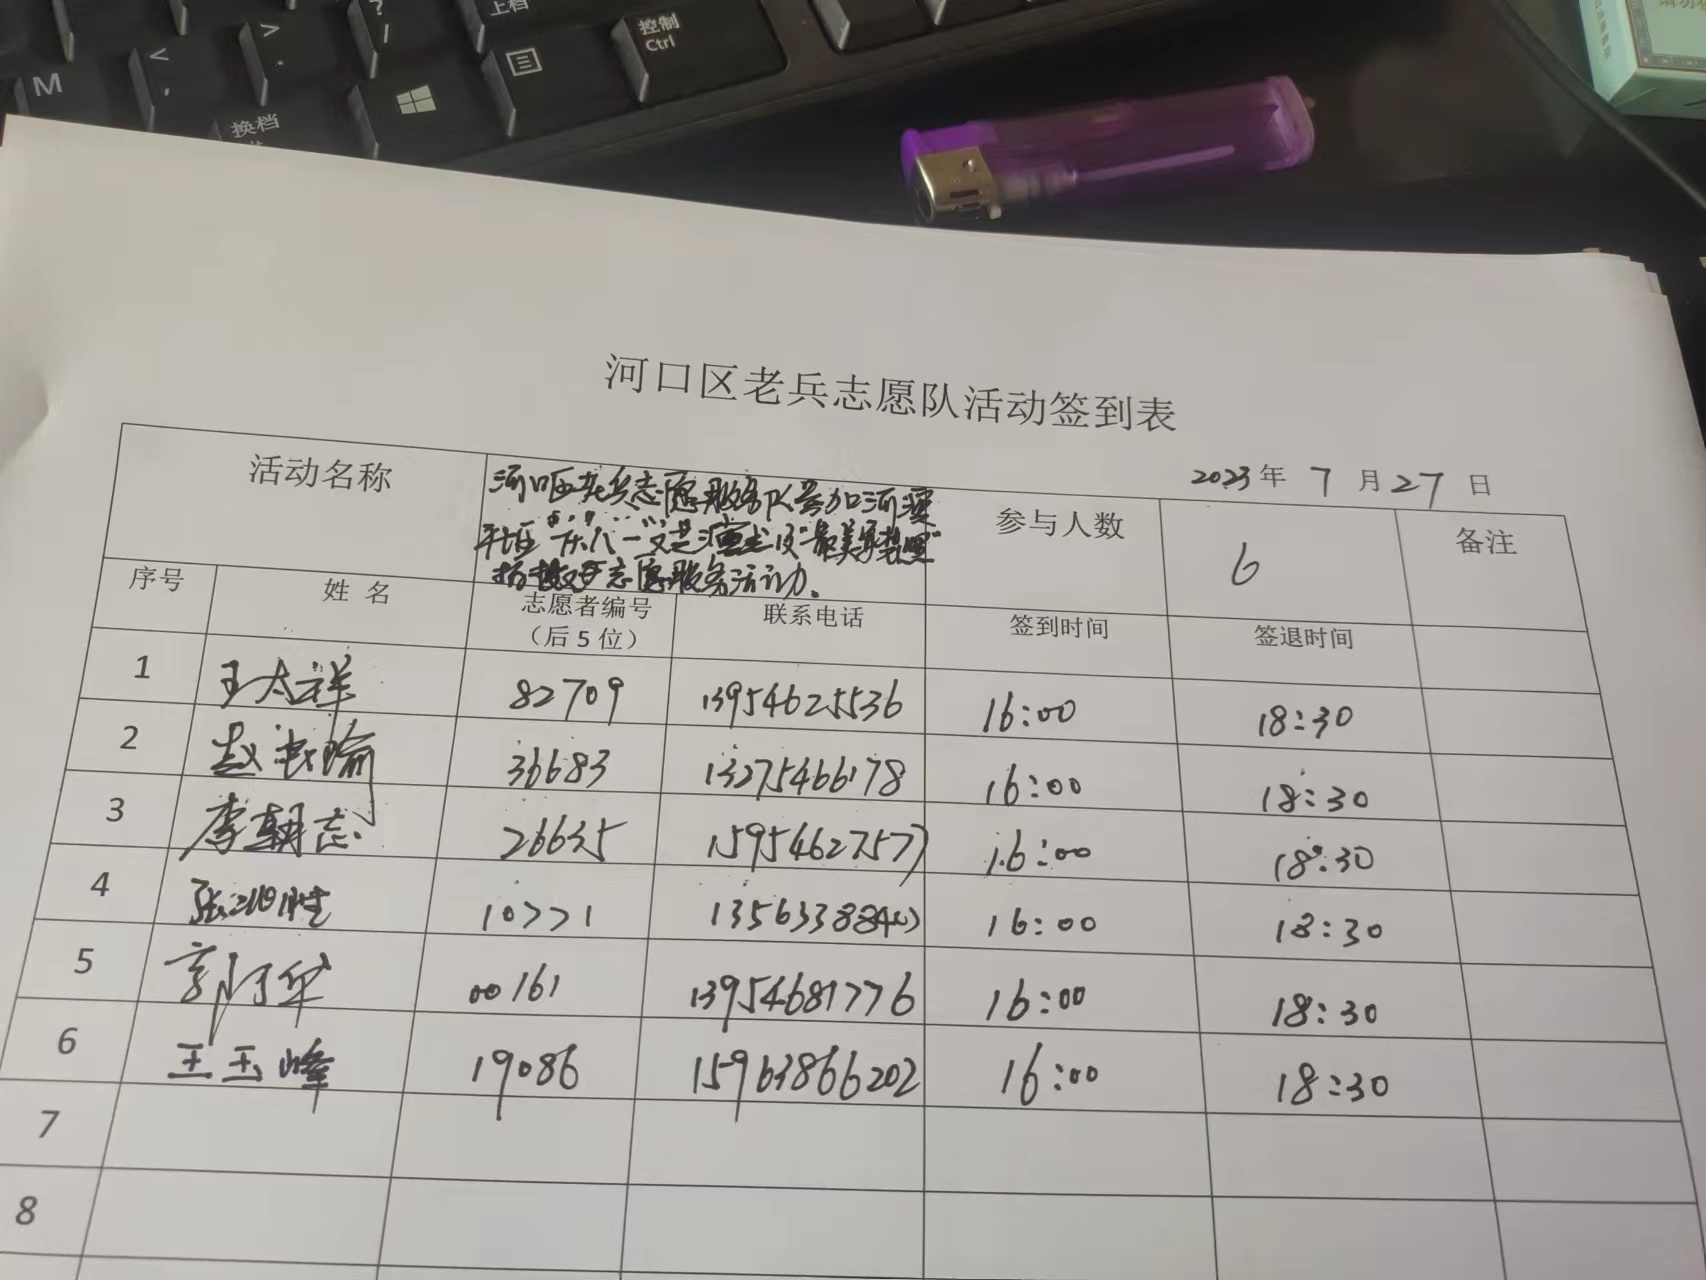 ?
/
上档
控制
Ctrl
>
.
<
,
M
换档
河口区老兵志愿队活动签到表
2023年 7 月 27 日
活动名称
河口区老兵志愿服务队参加河
社区"庆八一文艺演出及"最美
志愿服务活动。
参与人数
6
备注
序号 姓 名 志愿者编号 联系电话 签到时间 签退时间
（后5位）
1 王太祥 82709 13954625536 16:00 18:30
2 赵 36683 13275466178 16:00 18:30
3 李朝志 26635 15954627577 16:00 18:30
4 张 10771 16:00 18:30
5 郭 00161 13954681776 16:00 18:30
6 王玉峰 19086 15963866202 16:00 18:30
7
8